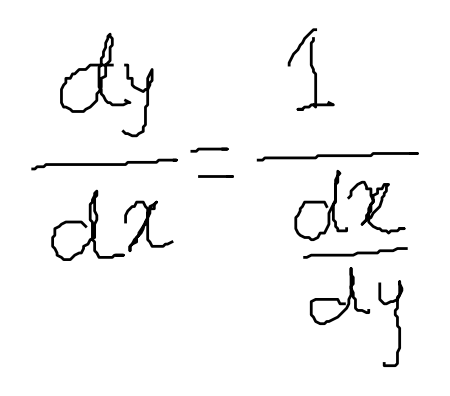 dy/dx = 1/(dx/dy)